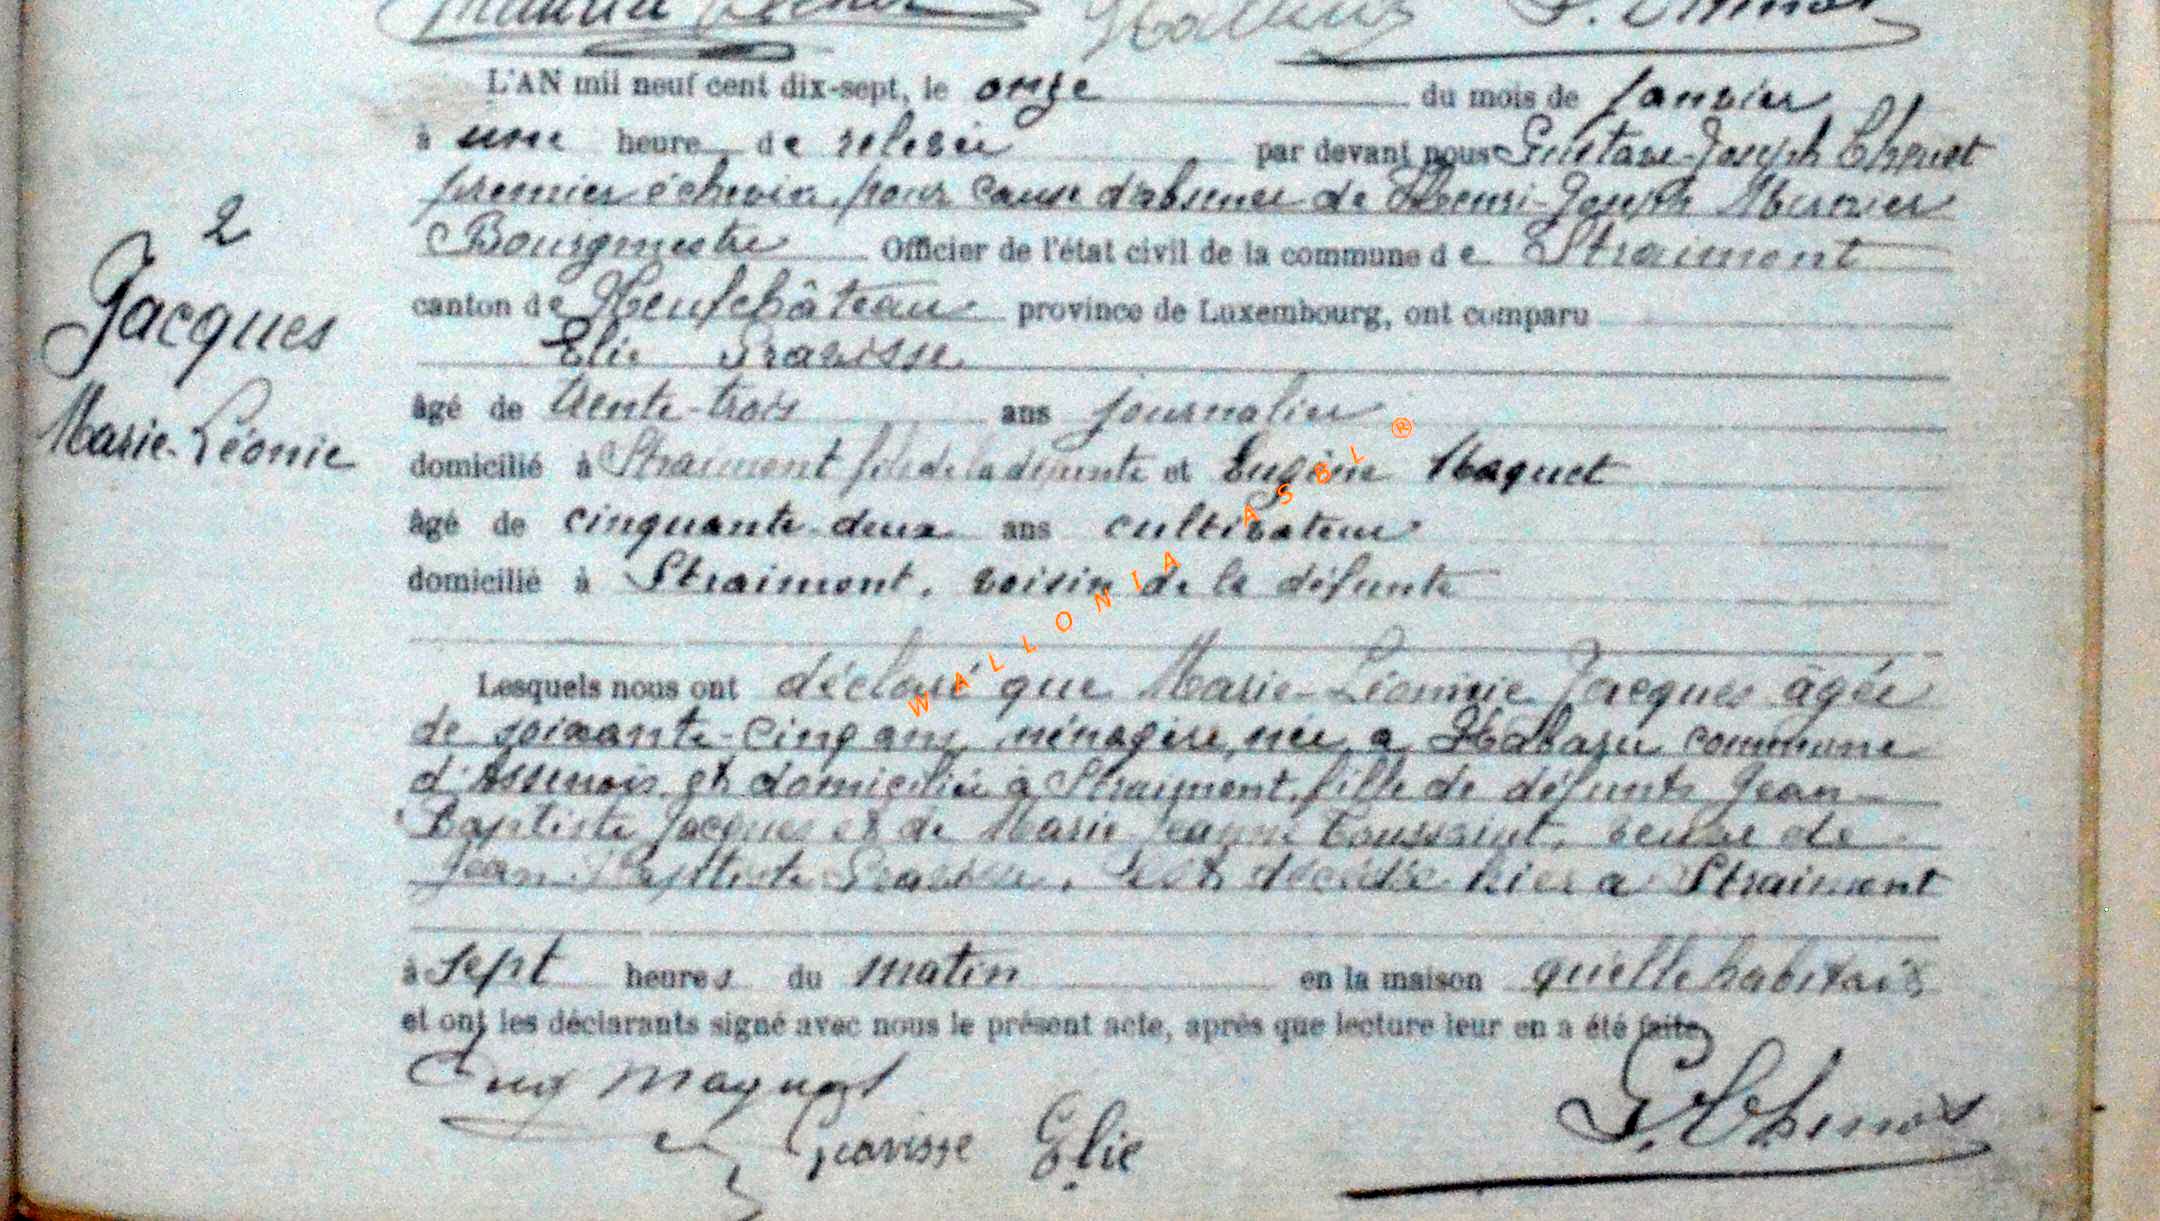 L'AN mil neuf cent dix-sept, le onze du mois de Janvier
à une heure de relevée par devant nous Gustave-Joseph
premier échevin, pour cause d'absence de Henri-Joseph
Bourgmestre Officier de l'état civil de la commune de Straimont
canton de Neufchâteau province de Luxembourg, ont comparu
2
Elie Gravisse
Jacques
âgé de trente-trois ans journalier
Marie-Léonie
domicilié à Straimont fils de la défunte et Eugène Maquet
âgé de cinquante-deux ans cultivateur
domicilié à Straimont, voisin de la défunte
WALLONIA ASBL ®
Lesquels nous ont déclaré que Marie-Léonnie Jacques âgée
de soixante-cinq ans, ménagère, née a Habaru commune
d'Assenois et domiciliée à Straimont, fille de défunts Jean-
Baptiste Jacques et de Marie Jeanne Toussaint, veuve de
Jean-Baptiste Gravisse, est décédée hier a Straimont
à sept heures du matin en la maison qu'elle habitait
et ont les déclarants signé avec nous le présent acte, après que lecture leur en a été faite
Eug Maquet
Gravisse Elie